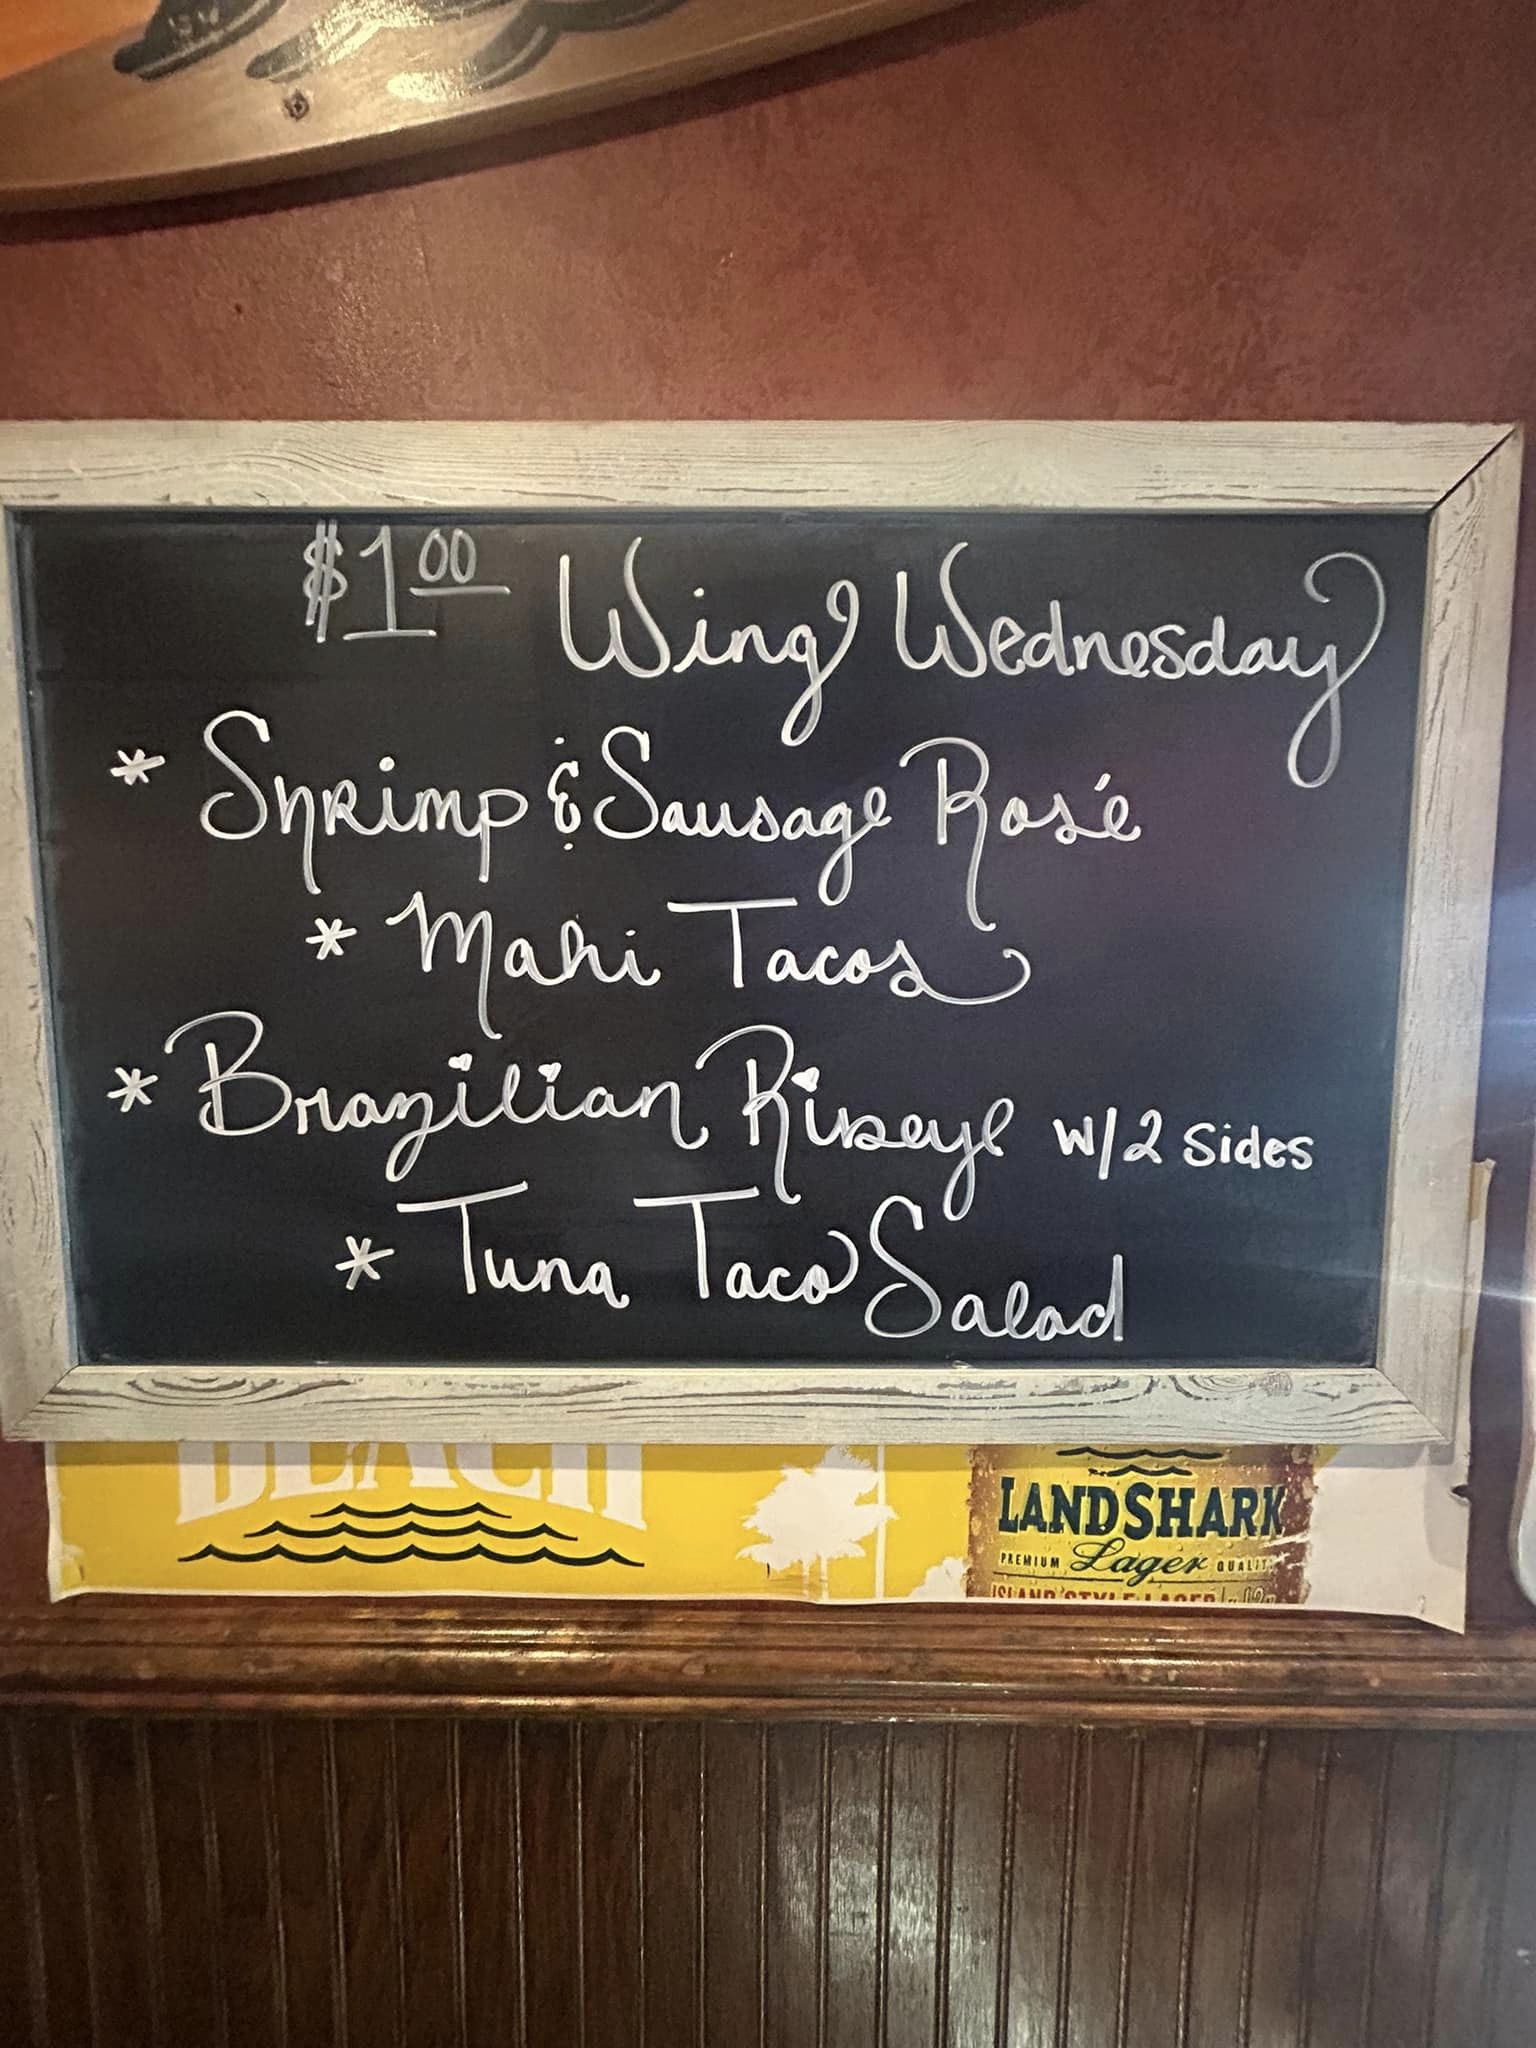 $1.00 Wing Wednesday
* Shrimp & Sausage Rosé
* Mahi Tacos
* Brazilian Ribeye w/2 sides
* Tuna Taco Salad
BEACH
LANDSHARK
PREMIUM Lager QUALITY
ISLAND STYLE LAGER